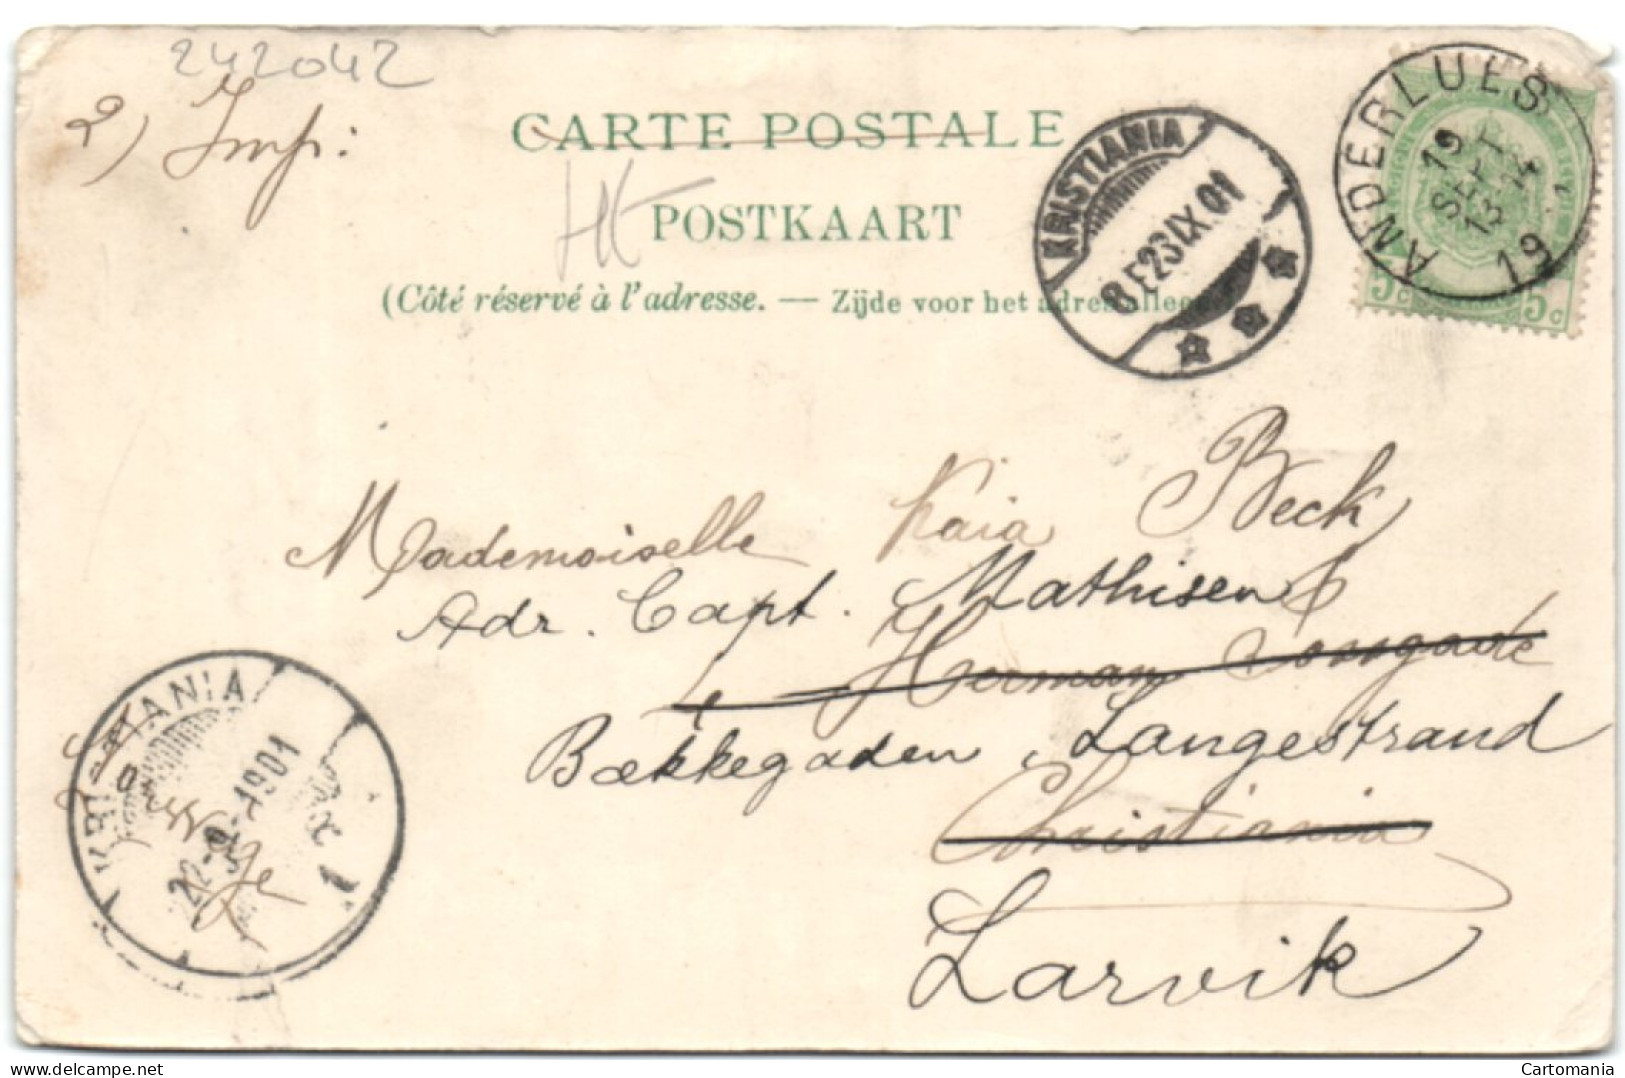 242042
2) Imp:
CARTE POSTALE
POSTKAART
(Côté réservé à l'adresse. — Zijde voor het adres
KRISTIANIA
8 E 23 IX.01
ANDERLUES
19
SEPT
13-14
19 1
5c 5c
Mademoiselle Kaia Beck
Adr. Capt. Mathisen
Herman
Bækkegaden, Langestrand
Christiania
Larvik
KRISTIANIA
22-9-1901
1
Norvège
Cartomania